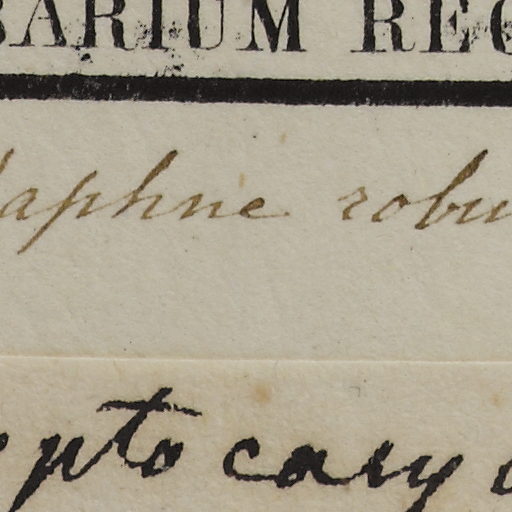 BARIUM REG
daphne robu
pto cary